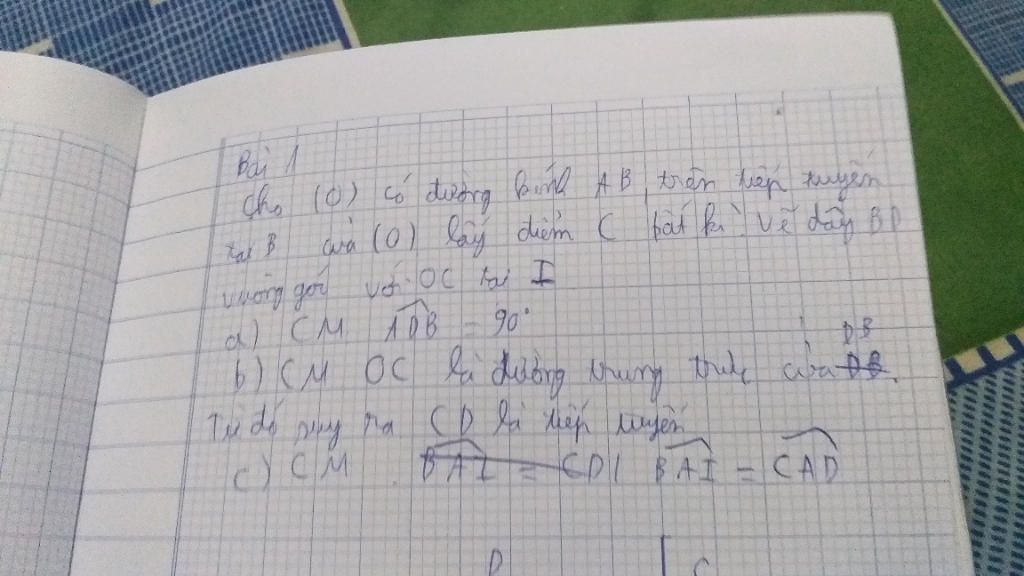 Bài 1
Cho (O) có đường kính AB, trên tiếp tuyến
tại B của (O) lấy điểm C bất kì. Vẽ dây BD
vuông góc với OC tại I
a) CM ADB = 90°
DB
b) CM OC là đường trung trực của DB.
Từ đó suy ra CD là tiếp tuyến
c) CM BAI = CDI BAI = CAD
D C